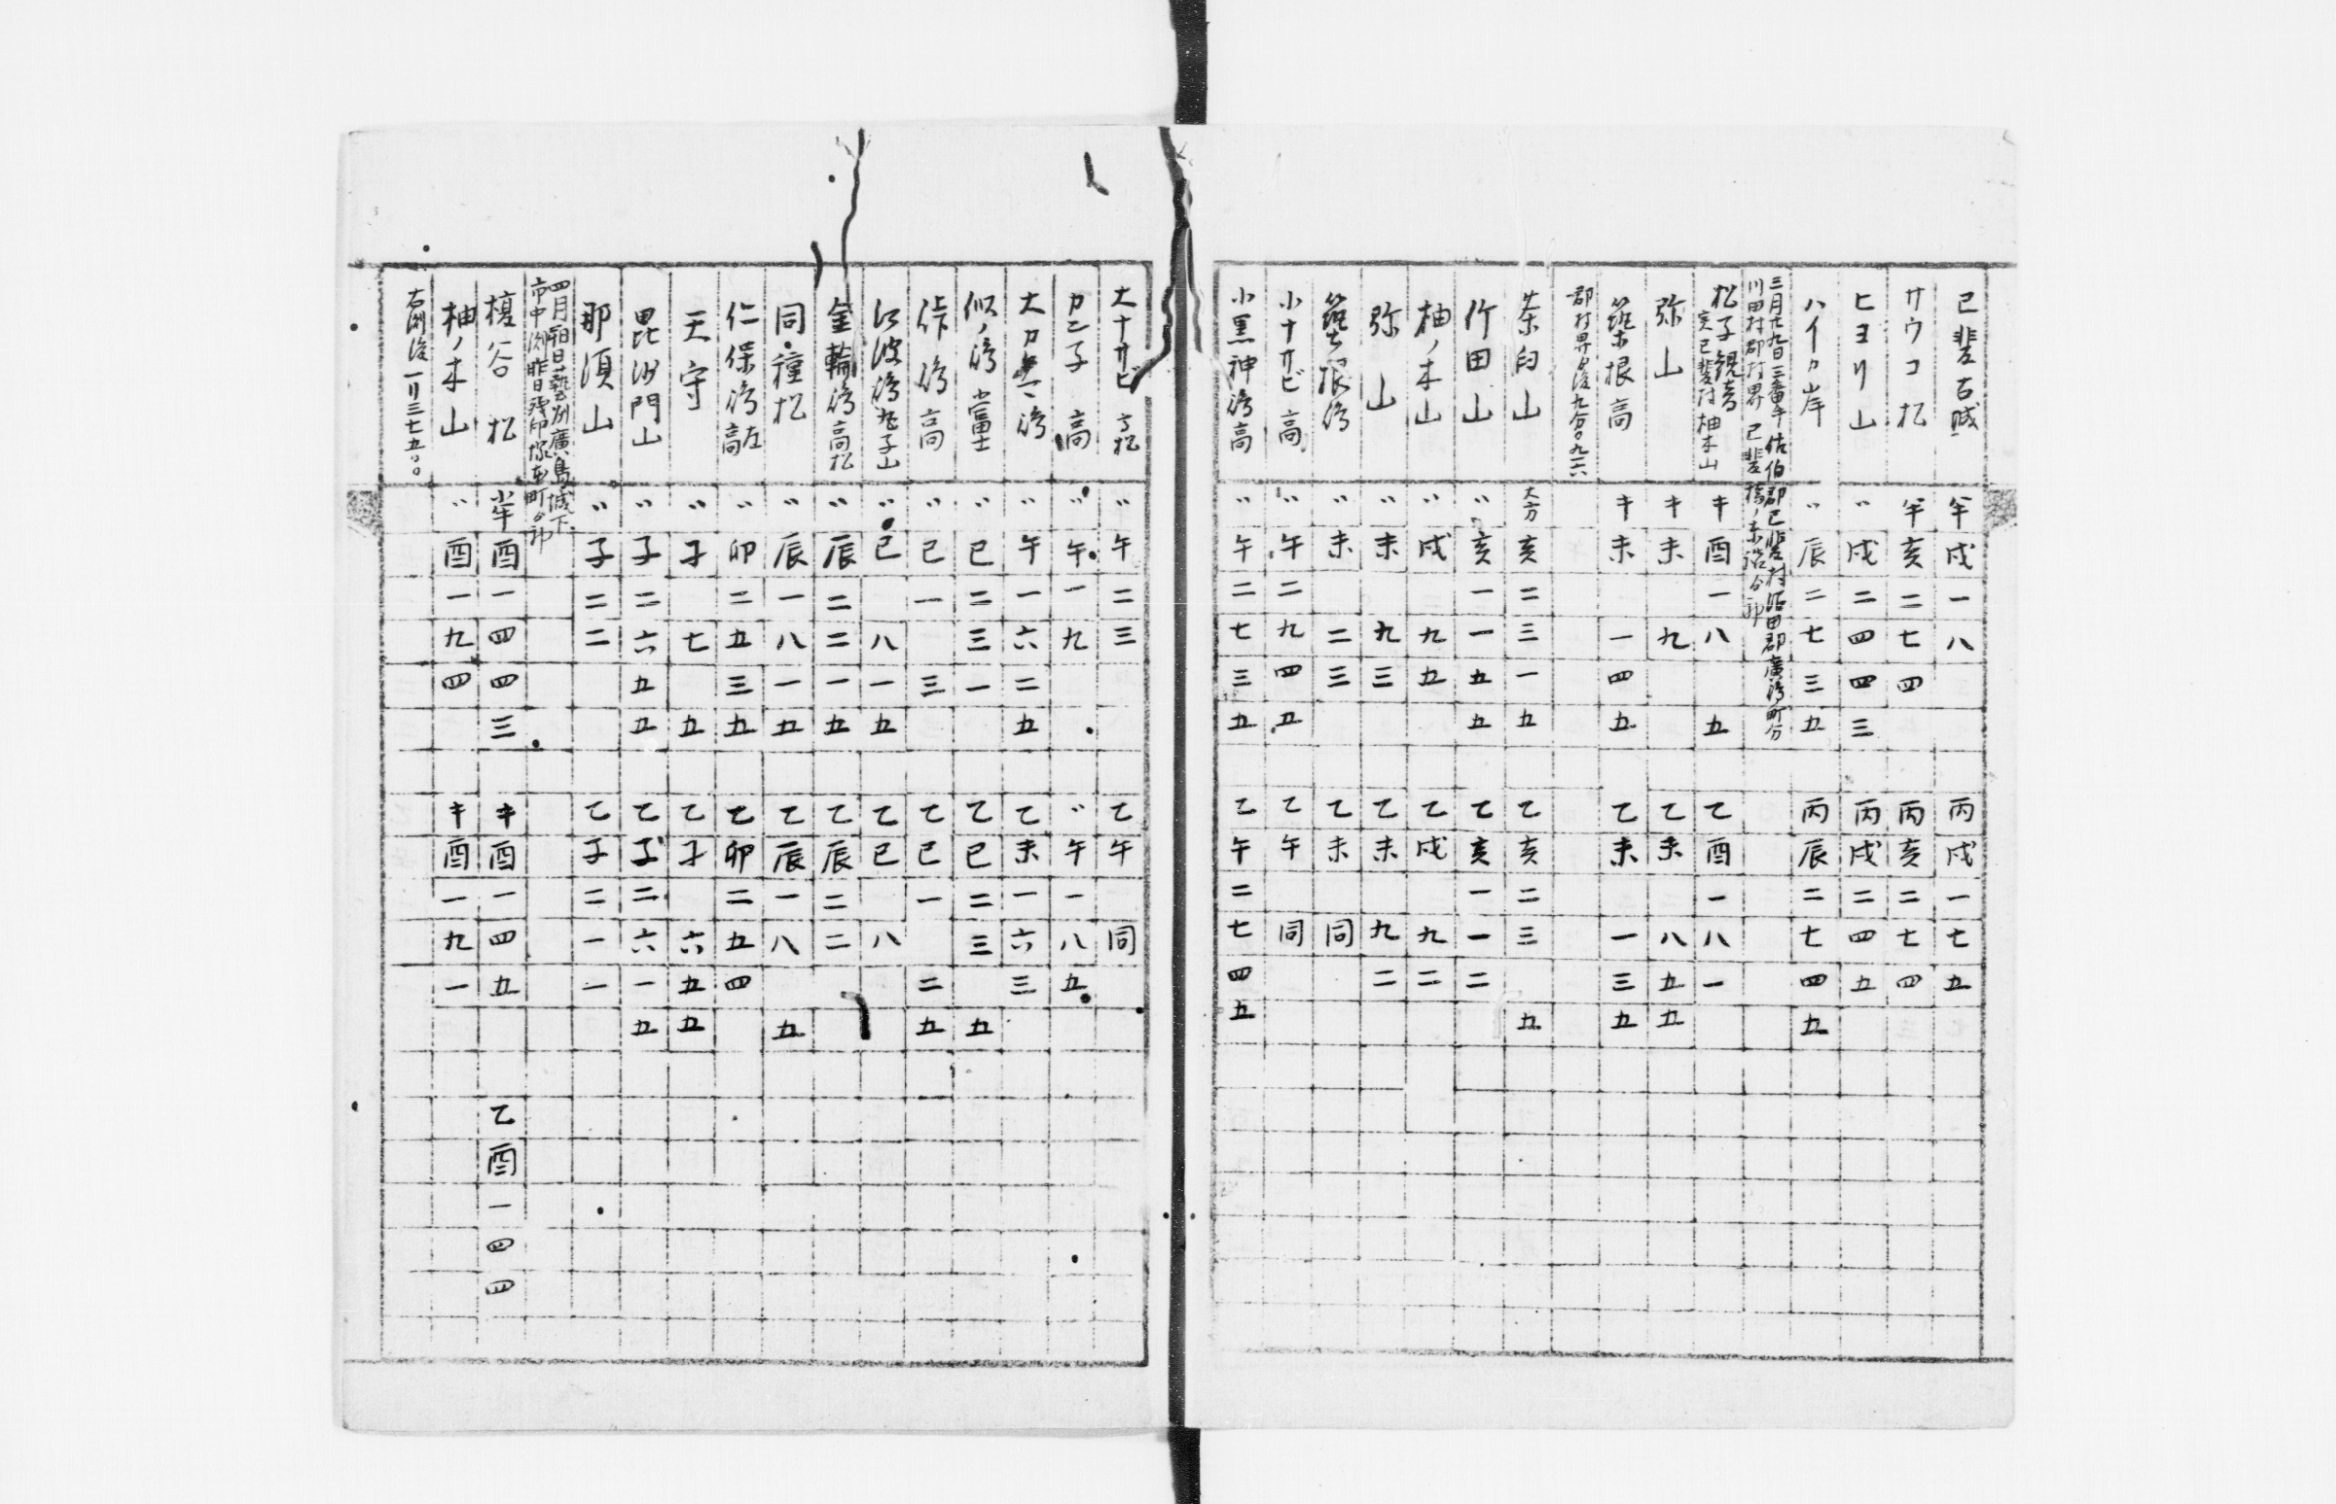 己斐古城 半 戌 一 八 丙 戌 一 七 五
サウコ松 半 亥 二 七 四 丙 亥 二 七 四
ヒヨリ山 〃 戌 二 四 四 三 丙 戌 二 四 五
ハイカ岸 〃 辰 二 七 三 五 丙 辰 二 七 四 五
三月廿九日三番牛 佐伯郡己斐村沼田郡廣瀬町分
川田村郡村界 己斐橋ノ未詰分印
松子観音 キ 酉 一 八 五 乙 酉 一 八 一
亥己斐村柚木山
弥山 キ 未 九 乙 未 八 五 五
築根高 キ 未 一 四 五 乙 未 一 三 五
郡村界ゟ後九分〇九六
茶臼山 大方 亥 二 三 一 五 乙 亥 二 三 五
竹田山 〃 亥 一 一 五 五 乙 亥 一 一 二
柚ノ木山 〃 戌 九 五 乙 戌 九 二
弥山 〃 未 九 三 乙 未 九 二
築根嶋 〃 未 二 三 乙 未 同
小ナサビ高 〃 午 二 九 四 五 乙 午 同
小黒神嶋高 〃 午 二 七 三 五 乙 午 二 七 四 五
大ナサビ 高松 〃 午 二 三 乙 午 同
カニ子 高 〃 午 一 九 〃 午 一 八 五
大カ嶋 〃 午 一 六 二 五 乙 未 一 六 三
似ノ嶋 小富士 〃 巳 二 三 一 乙 巳 二 三 五
峠嶋 高 〃 巳 一 三 乙 巳 一 二 五
江波嶋 丸子山 〃 巳 八 一 五 乙 巳 八
金輪嶋 高松 〃 辰 二 二 一 五 乙 辰 二 二
同 種松 〃 辰 一 八 一 五 乙 辰 一 八 五
仁保嶋 左高 〃 卯 二 五 三 五 乙 卯 二 五 四
天守 〃 子 七 五 乙 子 六 五 五
毘沙門山 〃 子 二 六 五 五 乙 子 二 六 一 五
那須山 〃 子 二 二 乙 子 二 一 一
四月朔日藝州廣島城下
市中測昨日残印塚本町分印
榎谷松 半 酉 一 四 四 三 キ 酉 一 四 五 乙 酉 一 四 四
柚ノ木山 〃 酉 一 九 四 キ 酉 一 九 一
右測後一リ三七五〇〇